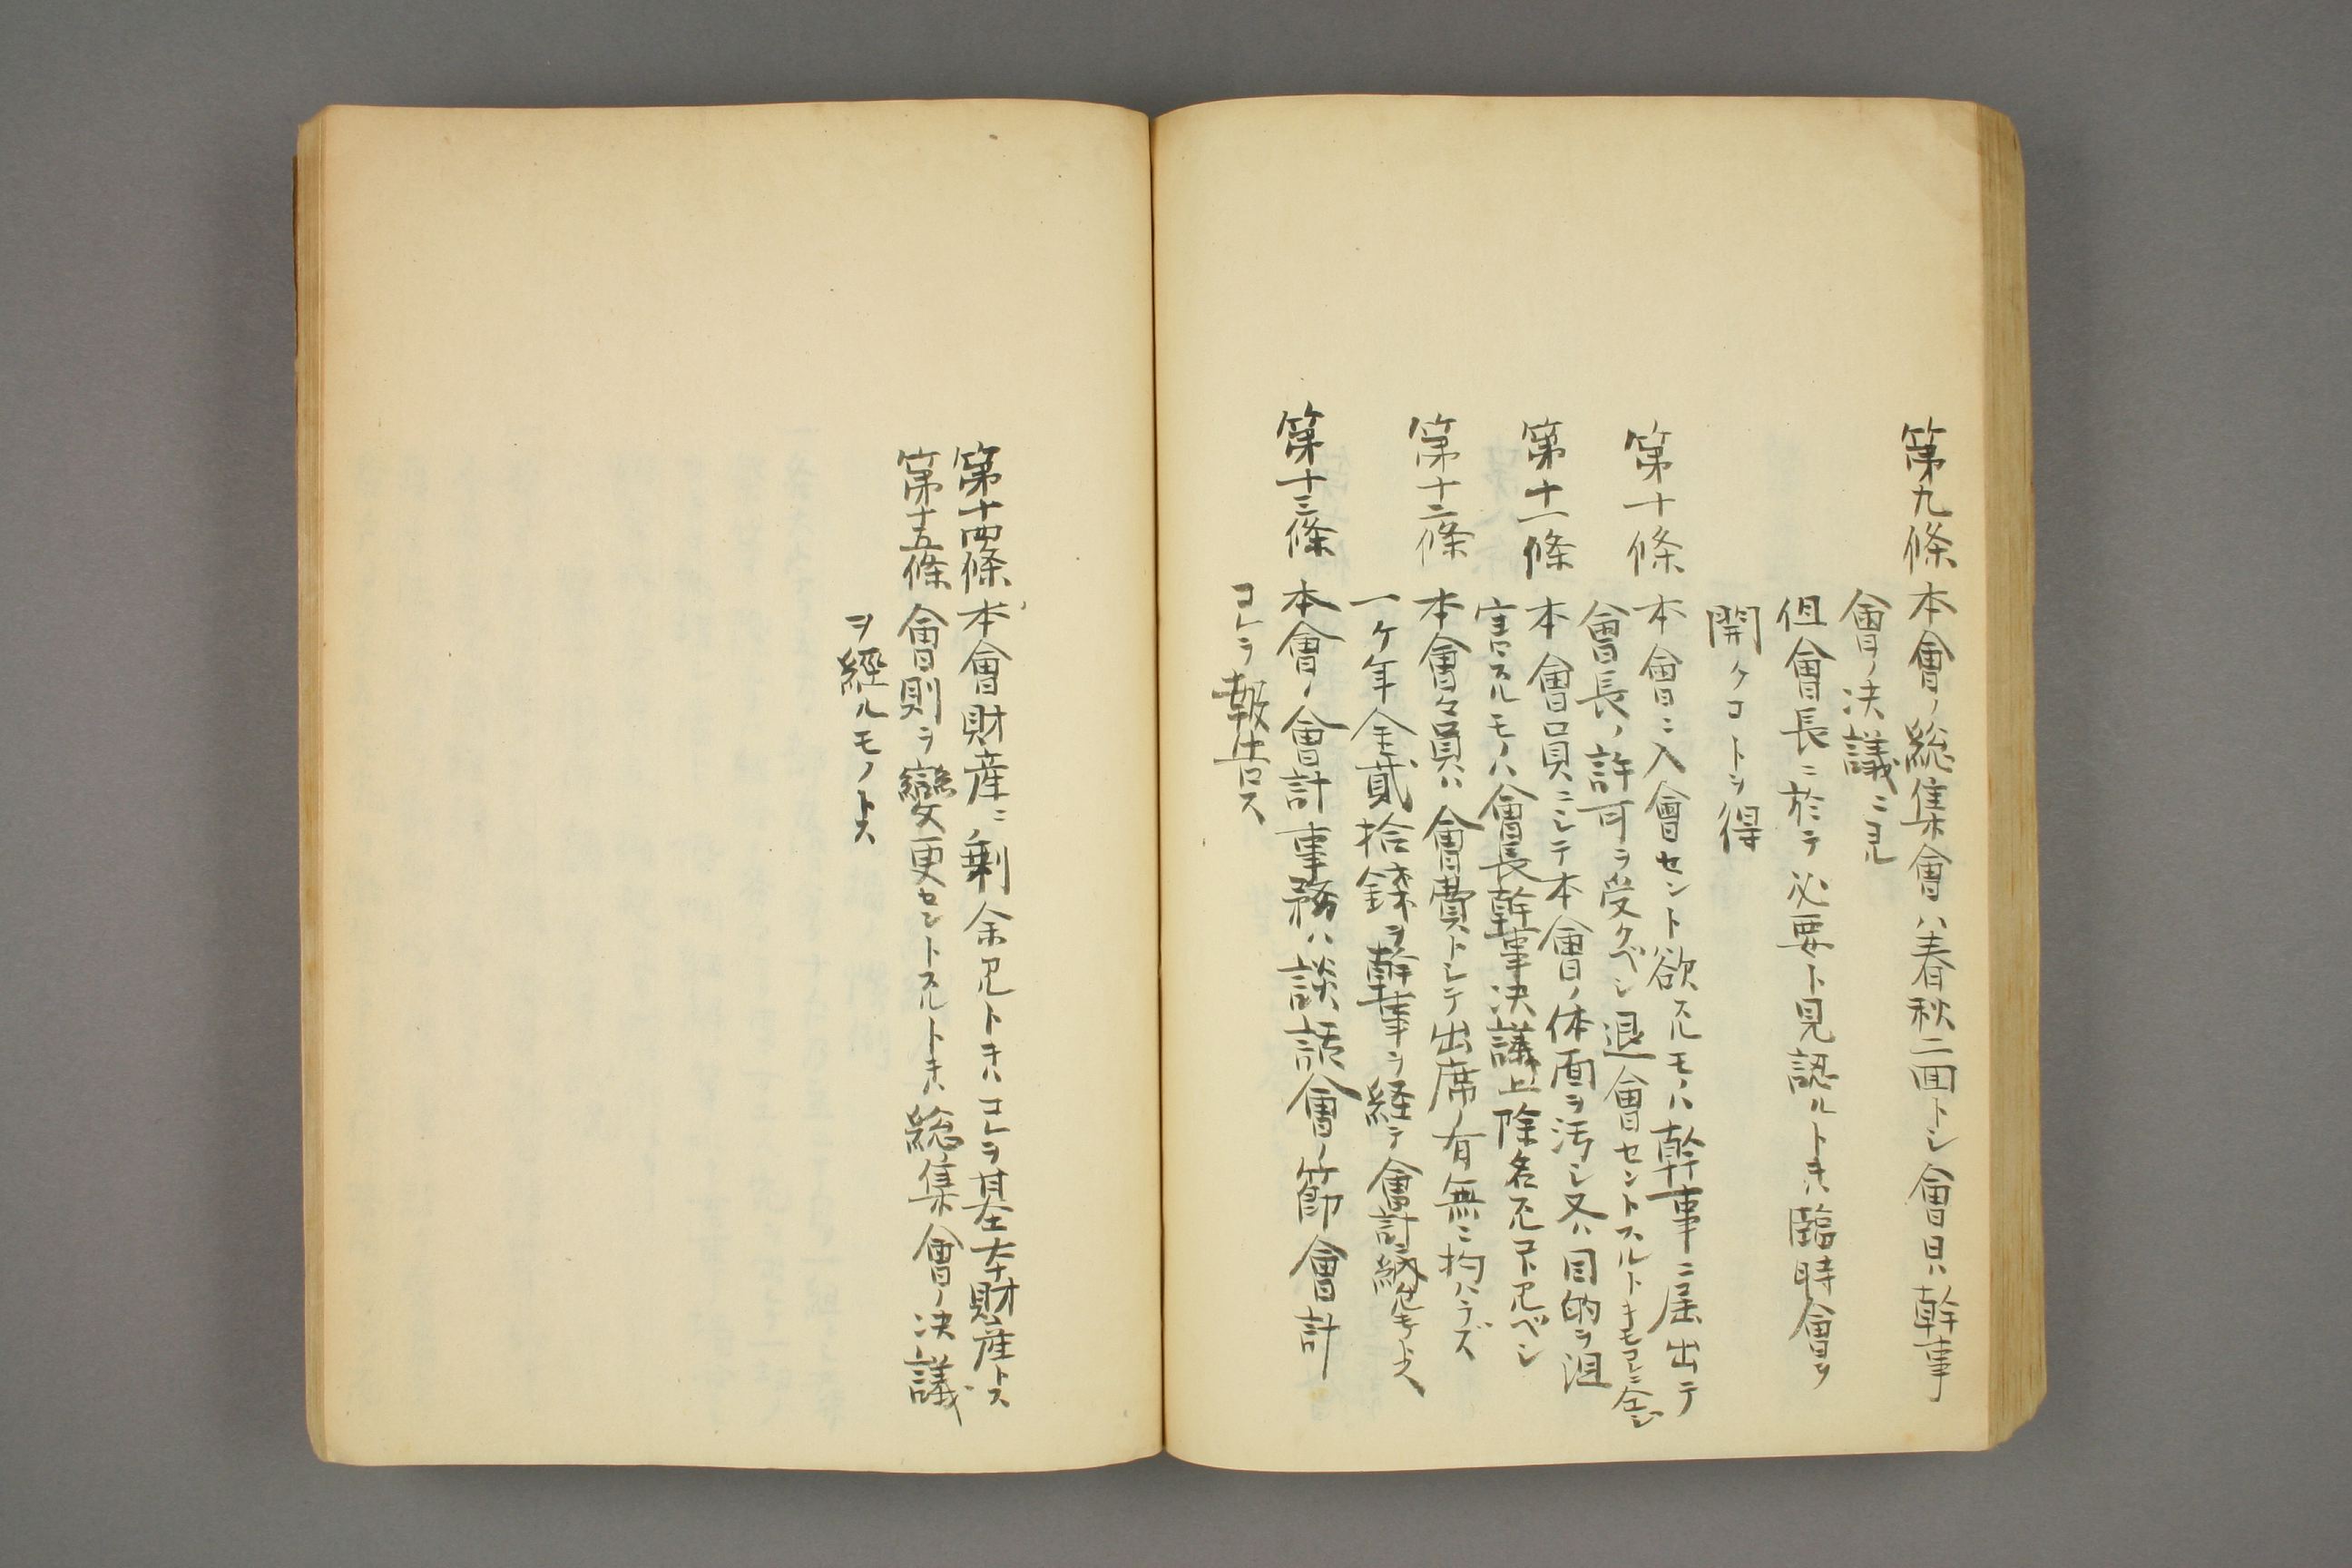 第九條 本會ノ総集會ハ春秋二回トシ會日ハ幹事
會ノ决議ニヨル
但會長ニ於テ必要ト見認ルトキハ臨時會ヲ
開クコトヲ得
第十條 本會ニ入會セント欲スルモノハ幹事ニ届出テ
會長ノ許可ヲ受クベシ退會セントスルトキモコレニ仝シ
第十一條 本會員ニシテ本會ノ体面ヲ汚シ又ハ目的ヲ沮
害スルモノハ會長幹事决議上除名スルコトアルベシ
第十二條 本會々員ハ會費トシテ出席ノ有無ニ拘ハラズ
一ケ年金貳拾錢ヲ幹事ヲ経テ會計ニ納ムルモノトス
第十三條 本會ノ會計事務ハ談話會ノ節會計
コレヲ報告ス
第十四條 本會財産ニ剰余アルトキハコレヲ基本財産トス
第十五條 會則ヲ變更セントスルトキハ総集會ノ决議
ヲ經ルモノトス